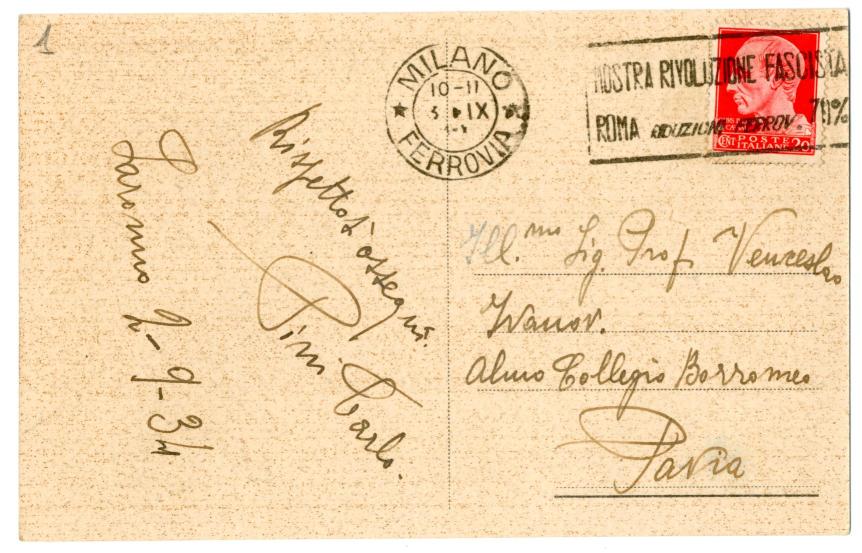 1
Saronno 2-9-34
Rispettosi ossequi.
Pini Carlo.
MILANO
10-11
3 IX
FERROVIA
MOSTRA RIVOLUZIONE FASCISTA
ROMA RIDUZIONI FERROV. 70%
POSTE
CENT ITALIANE 20
Ill.mo Sig. Prof. Venceslao
Ivanov.
Almo Collegio Borromeo
Pavia